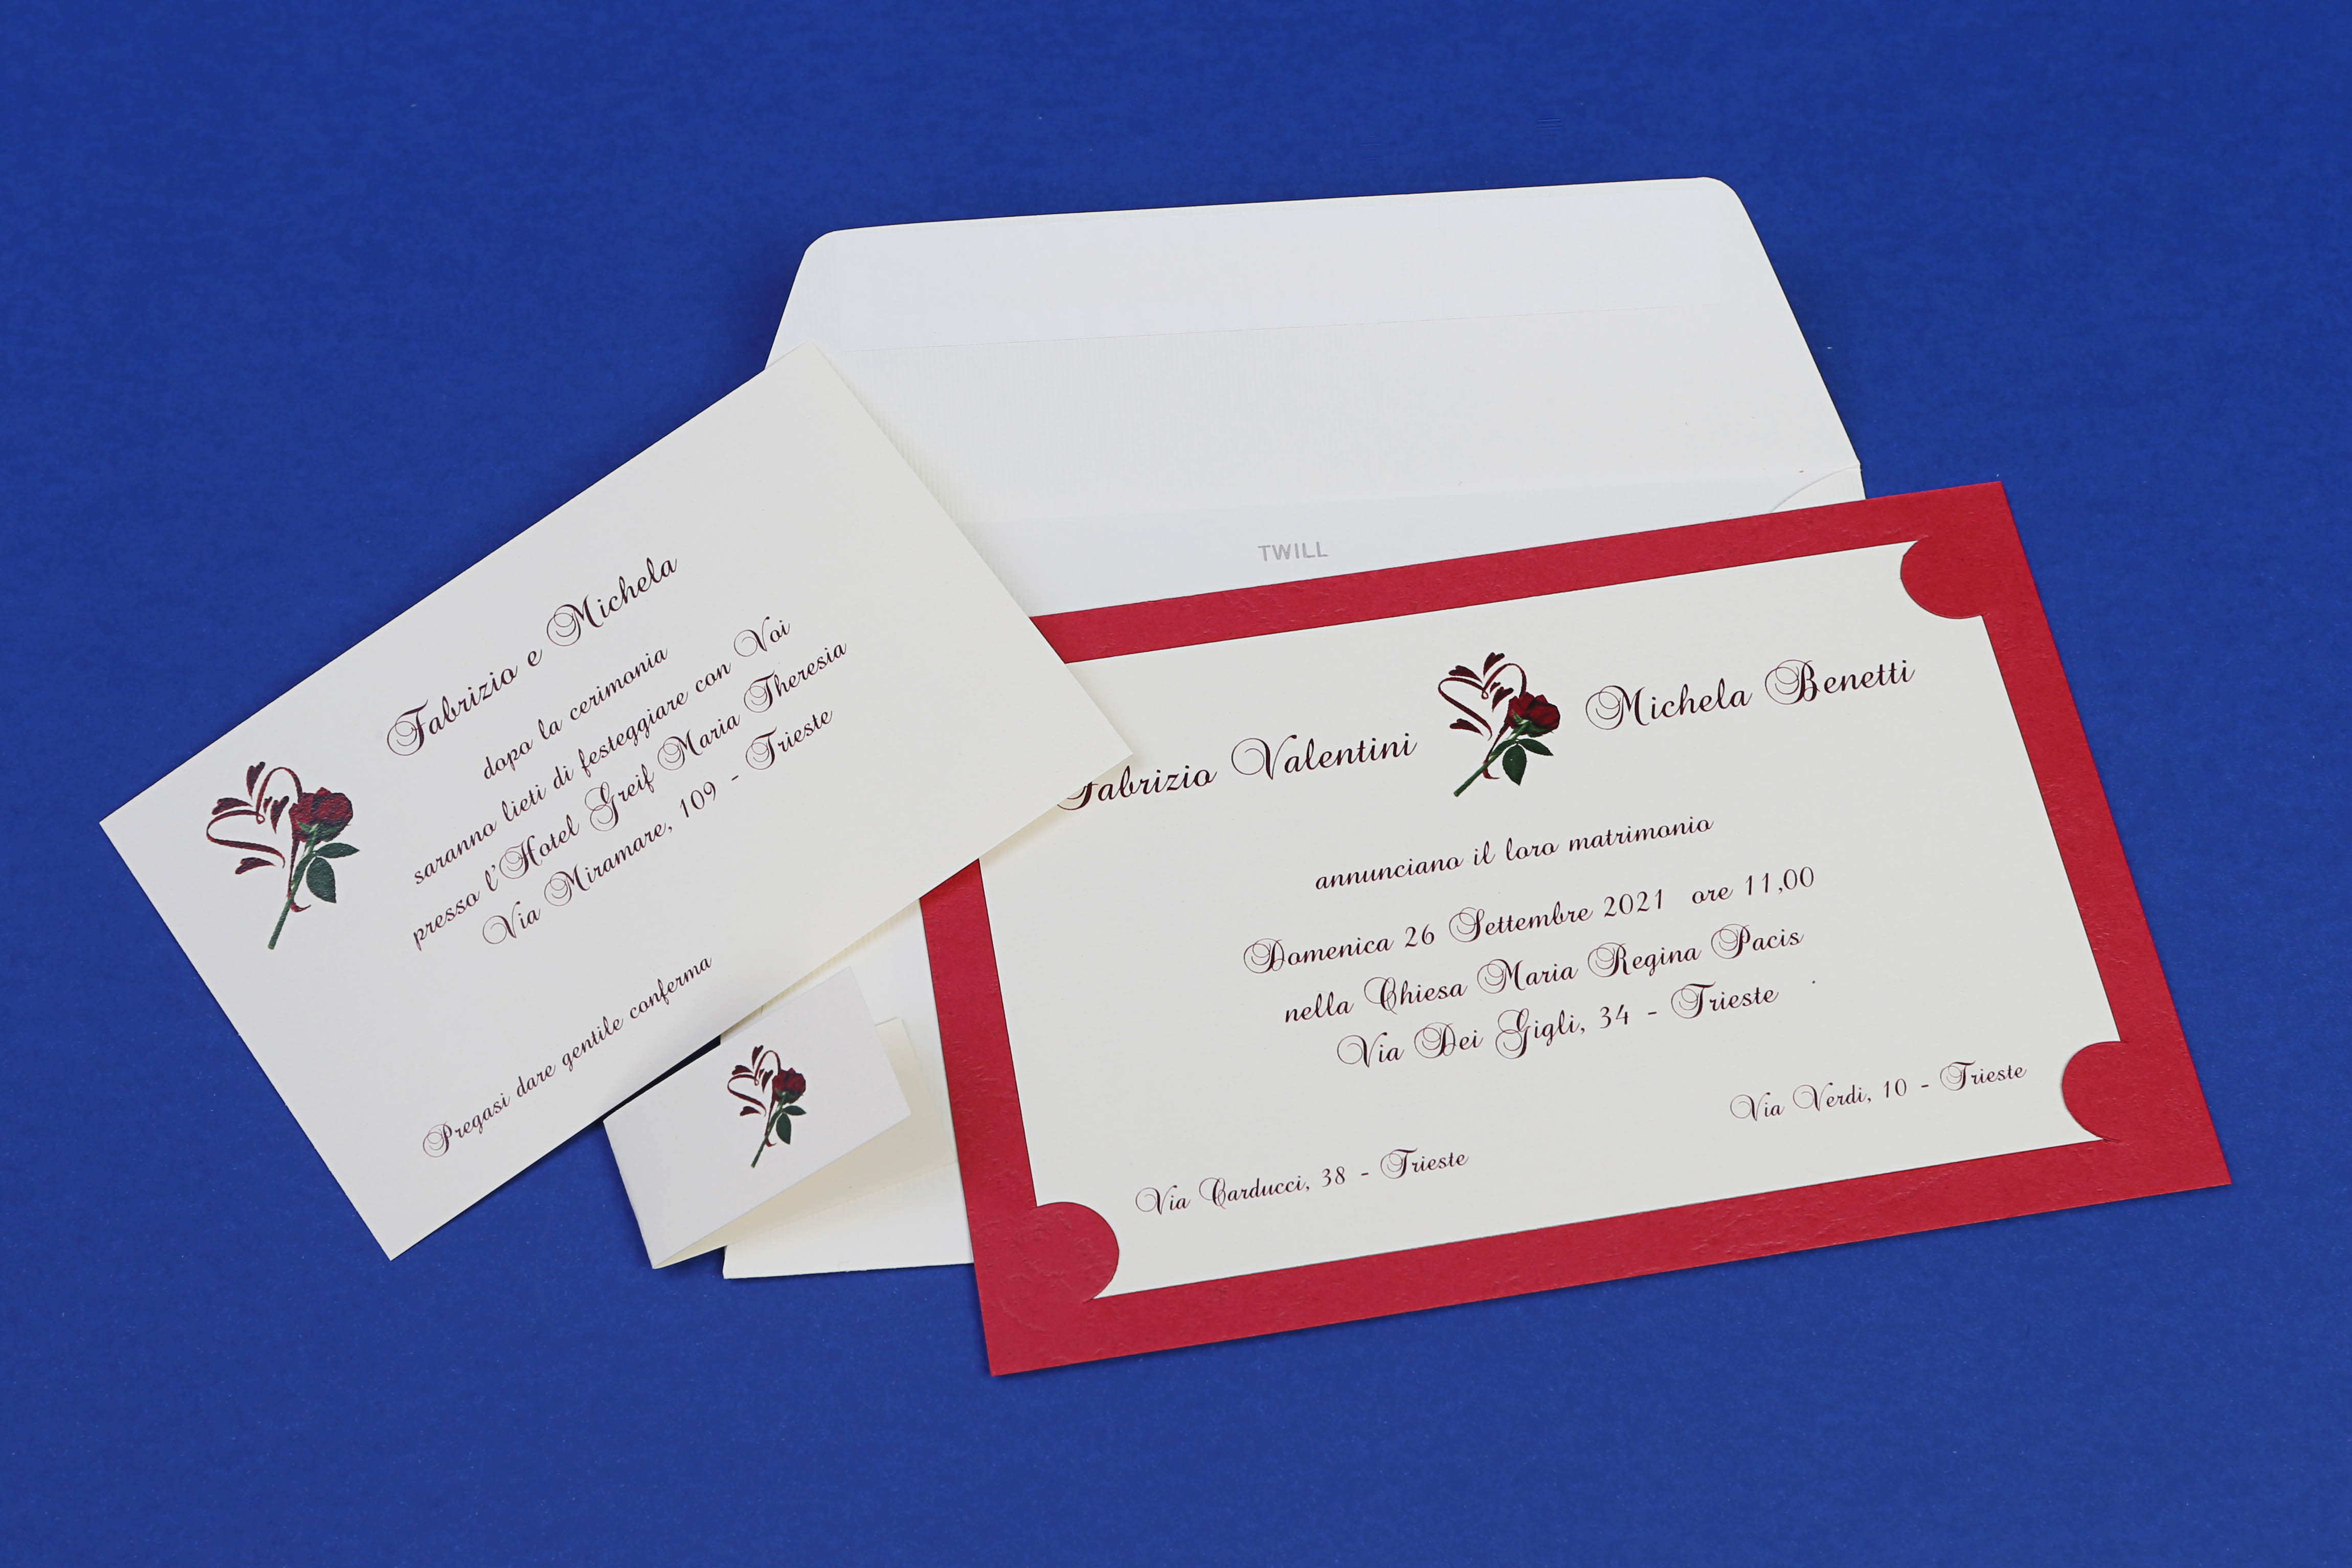 Fabrizio e Michela
dopo la cerimonia
saranno lieti di festeggiare con Voi
presso l'Hotel Greif Maria Theresia
Via Miramare, 109 - Trieste
Pregasi dare gentile conferma
TWILL
Fabrizio Valentini Michela Benetti
annunciano il loro matrimonio
Domenica 26 Settembre 2021 ore 11,00
nella Chiesa Maria Regina Pacis
Via Dei Gigli, 34 - Trieste
Via Verdi, 10 - Trieste
Via Carducci, 38 - Trieste